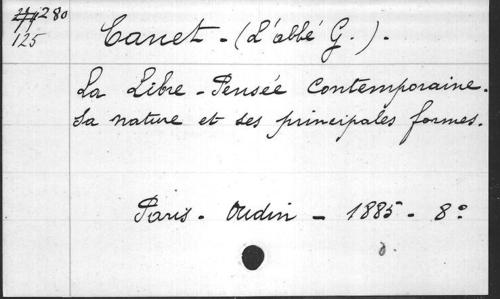 280
125
Canet - (L'abbé G.) -
La Libre - Pensée contemporaine.
Sa nature et ses principales formes.
Paris - Oudin - 1885 - 8°
d.